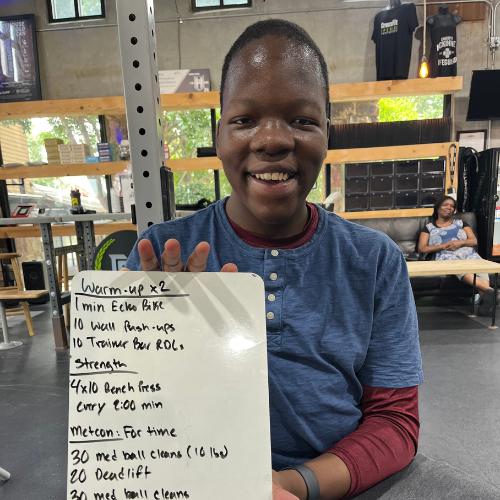 Warm-up x2
1 min Echo Bike
10 Wall Push-ups
10 Trainer Bar RDLs
Strength
4x10 Bench Press
every 2:00 min
Metcon: For time
30 med ball cleans (10 lbs)
20 Deadlift
30 med ball cleans